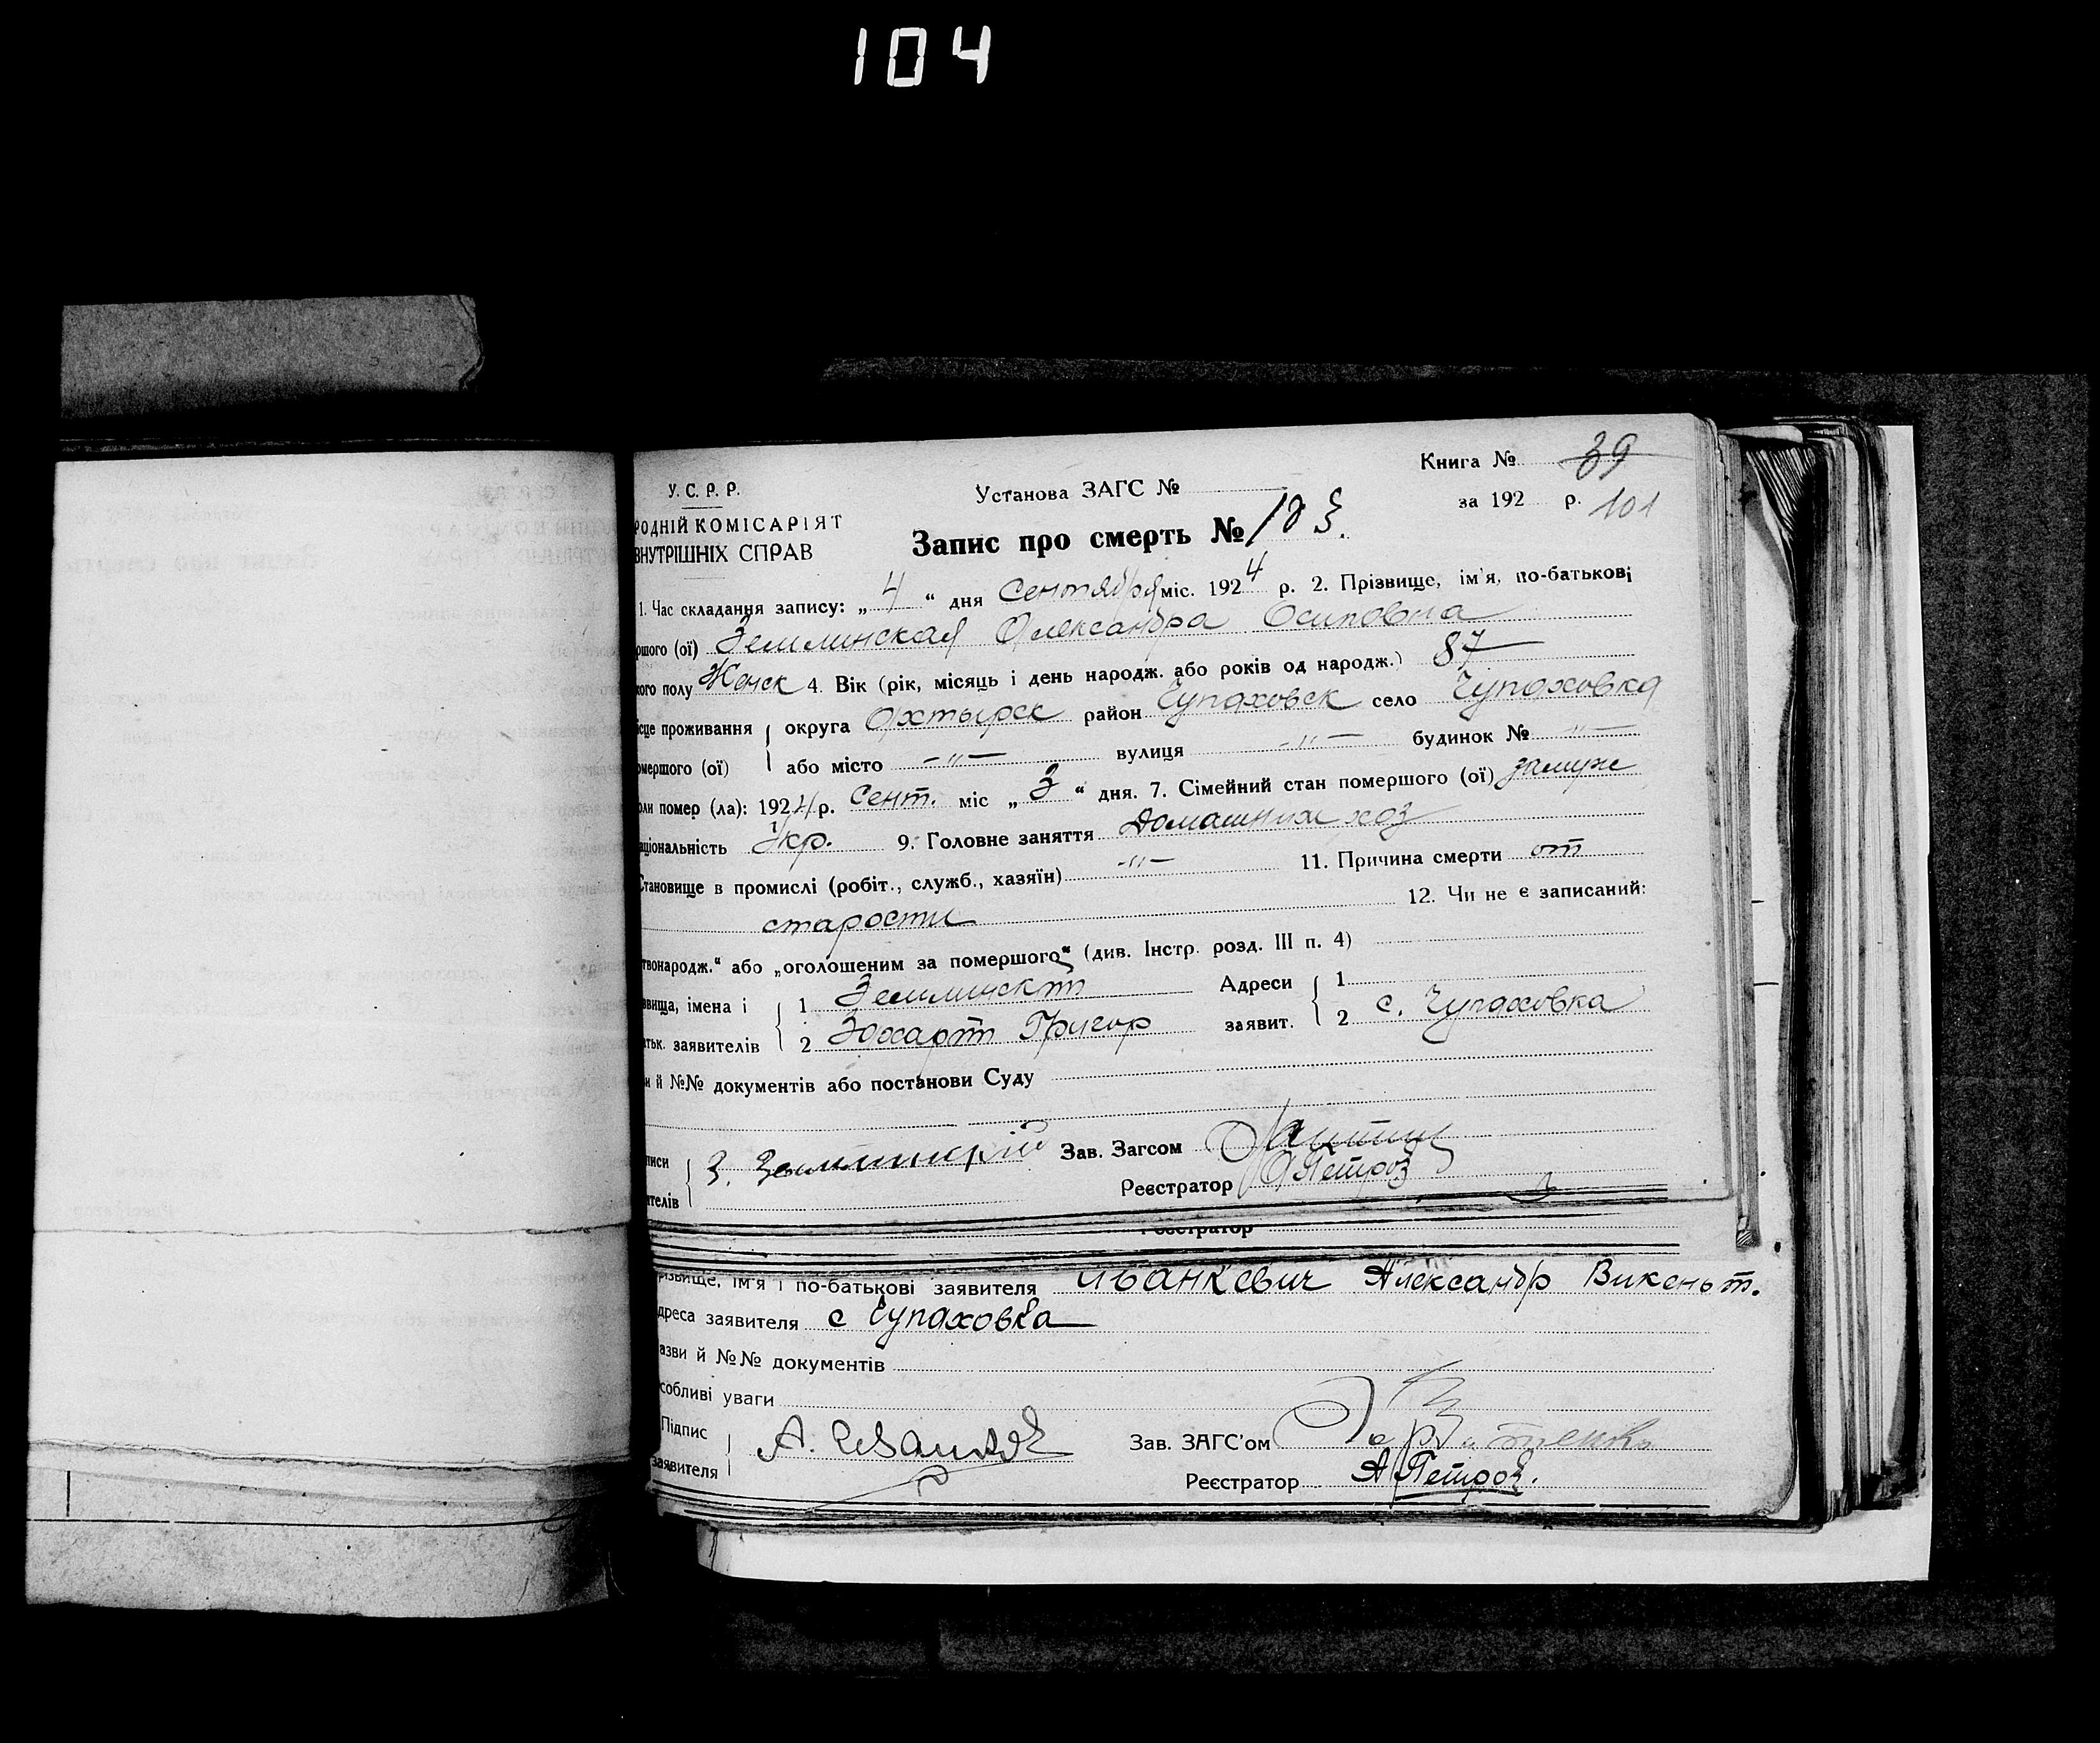 104
Книга № 39
У. С. Р. Р.
Установа ЗАГС №
за 192 р. 101
РОДНІЙ КОМІСАРІЯТ
ВНУТРІШНІХ СПРАВ
Запис про смерть № 103.
1. Час складання запису: „ 4 “ дня Сентября міс. 1924 р. 2. Прізвище, ім'я, по-батькові
ршого (ої) Земминская Олександра Осиповна
кого полу Женск 4. Вік (рік, місяць і день народж. або років од народж.) 87
ісце проживання округа Охтырск район Чупаховск село Чупаховка
омершого (ої) або місто —"— вулиця —"— будинок № —"—
оли помер (ла): 1924 р. Сент. міс „ 3 “ дня. 7. Сімейний стан помершого (ої) замуже
аціональність Укр. 9. Головне заняття Домашних хоз
Становище в промислі (робіт., служб., хазяїн) —"— 11. Причина смерти от
старости 12. Чи не є записаний:
твонародж.“ або „оголошеним за помершого“ (див. Інстр. розд. III п. 4)
звища, імена і 1 Адреси 1
атьк. заявителів 2 Григор заявит. 2 с. Чупаховка
и й №№ документів або постанови Суду
писи З. Зав. Загсом
ителів Реєстратор А Петров
Реєстратор
різвище, ім'я і по-батькові заявителя Иванкевич Александр Викеньт.
дреса заявителя с Чупаховка
азви й №№ документів
собливі уваги
Підпис А. Зав. ЗАГС'ом
заявителя Реєстратор А Петров.